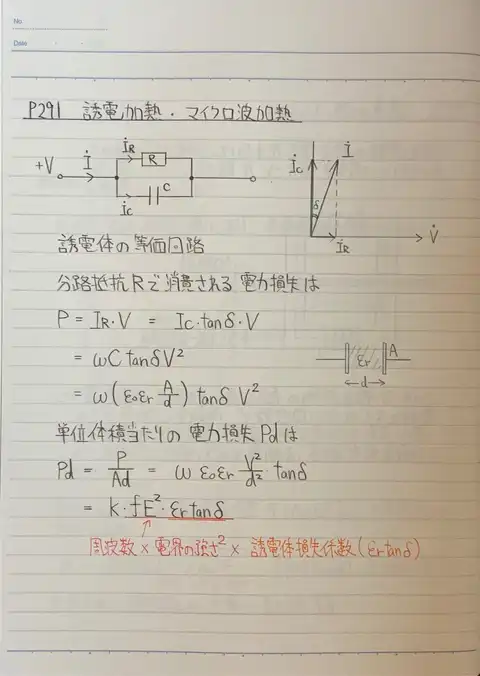 No.
Date
P291 誘電加熱・マイクロ波加熱
+V İ İR R İC C
İC İ δ İR V̇
誘電体の等価回路
分路抵抗Rで消費される電力損失は
P = IR・V = Ic・tanδ・V
= ωC tanδV²
= ω(ε₀εr A/d) tanδ V²
εr A d
単位体積当たりの電力損失Pdは
Pd = P/Ad = ω ε₀εr V²/d² ・tanδ
= K・fE²・εr tanδ
周波数 × 電界の強さ² × 誘電体損失係数(εr tanδ)